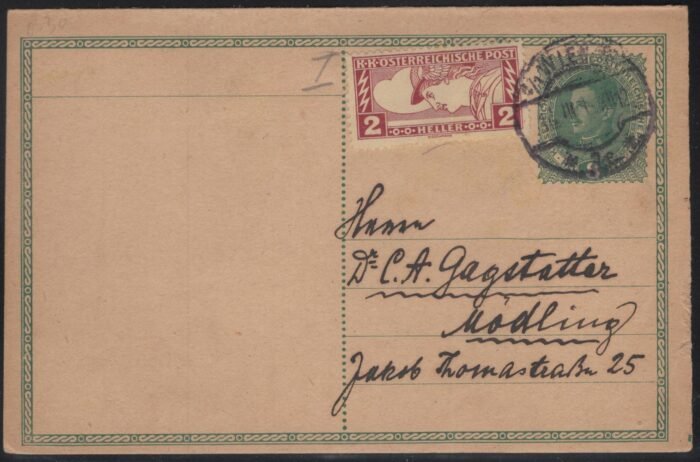 I
K.K.ÖSTERREICHISCHE POST
2 HELLER 2
WIEN
Herrn
Dr C. A. Gagstatter
Mödling
Jakob Thomastraße 25